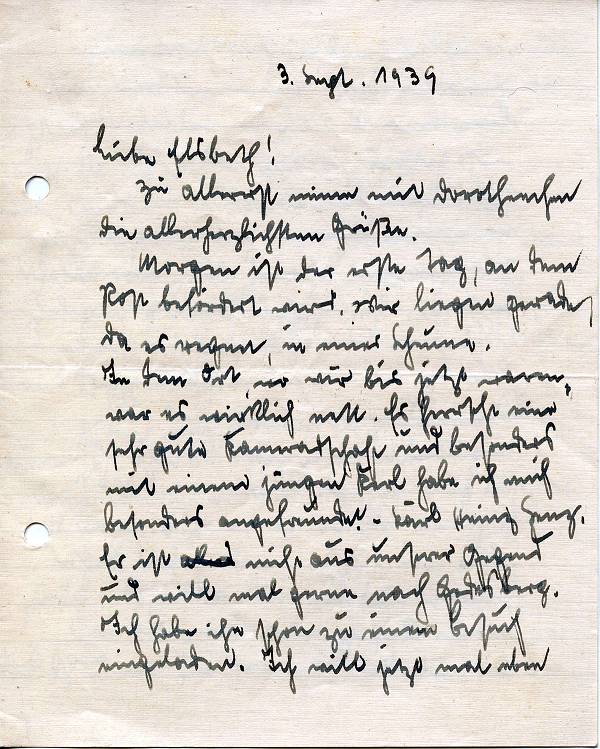 3. Sept. 1939
Liebe Elsbeth!
Zu allererst einem mit Dorotheechen
die allerherzlichsten Grüße.
Morgen ist der erste Tag, an dem
Post befördert wird. Wir liegen gerade,
da es regnet, in einer Scheune.
In dem Ort, wo wir bis jetzt waren,
war es wirklich nett. Es herrscht eine
sehr gute Kameradschaft und besonders
mit einem jungen Kerl habe ich mich
besonders angefreundet - Karl Heinz
Er ist nicht aus unserer Gegend
und will mal gerne nach Godesberg.
Ich habe ihn schon zu einem Besuch
eingeladen. Ich will jetzt mal eben